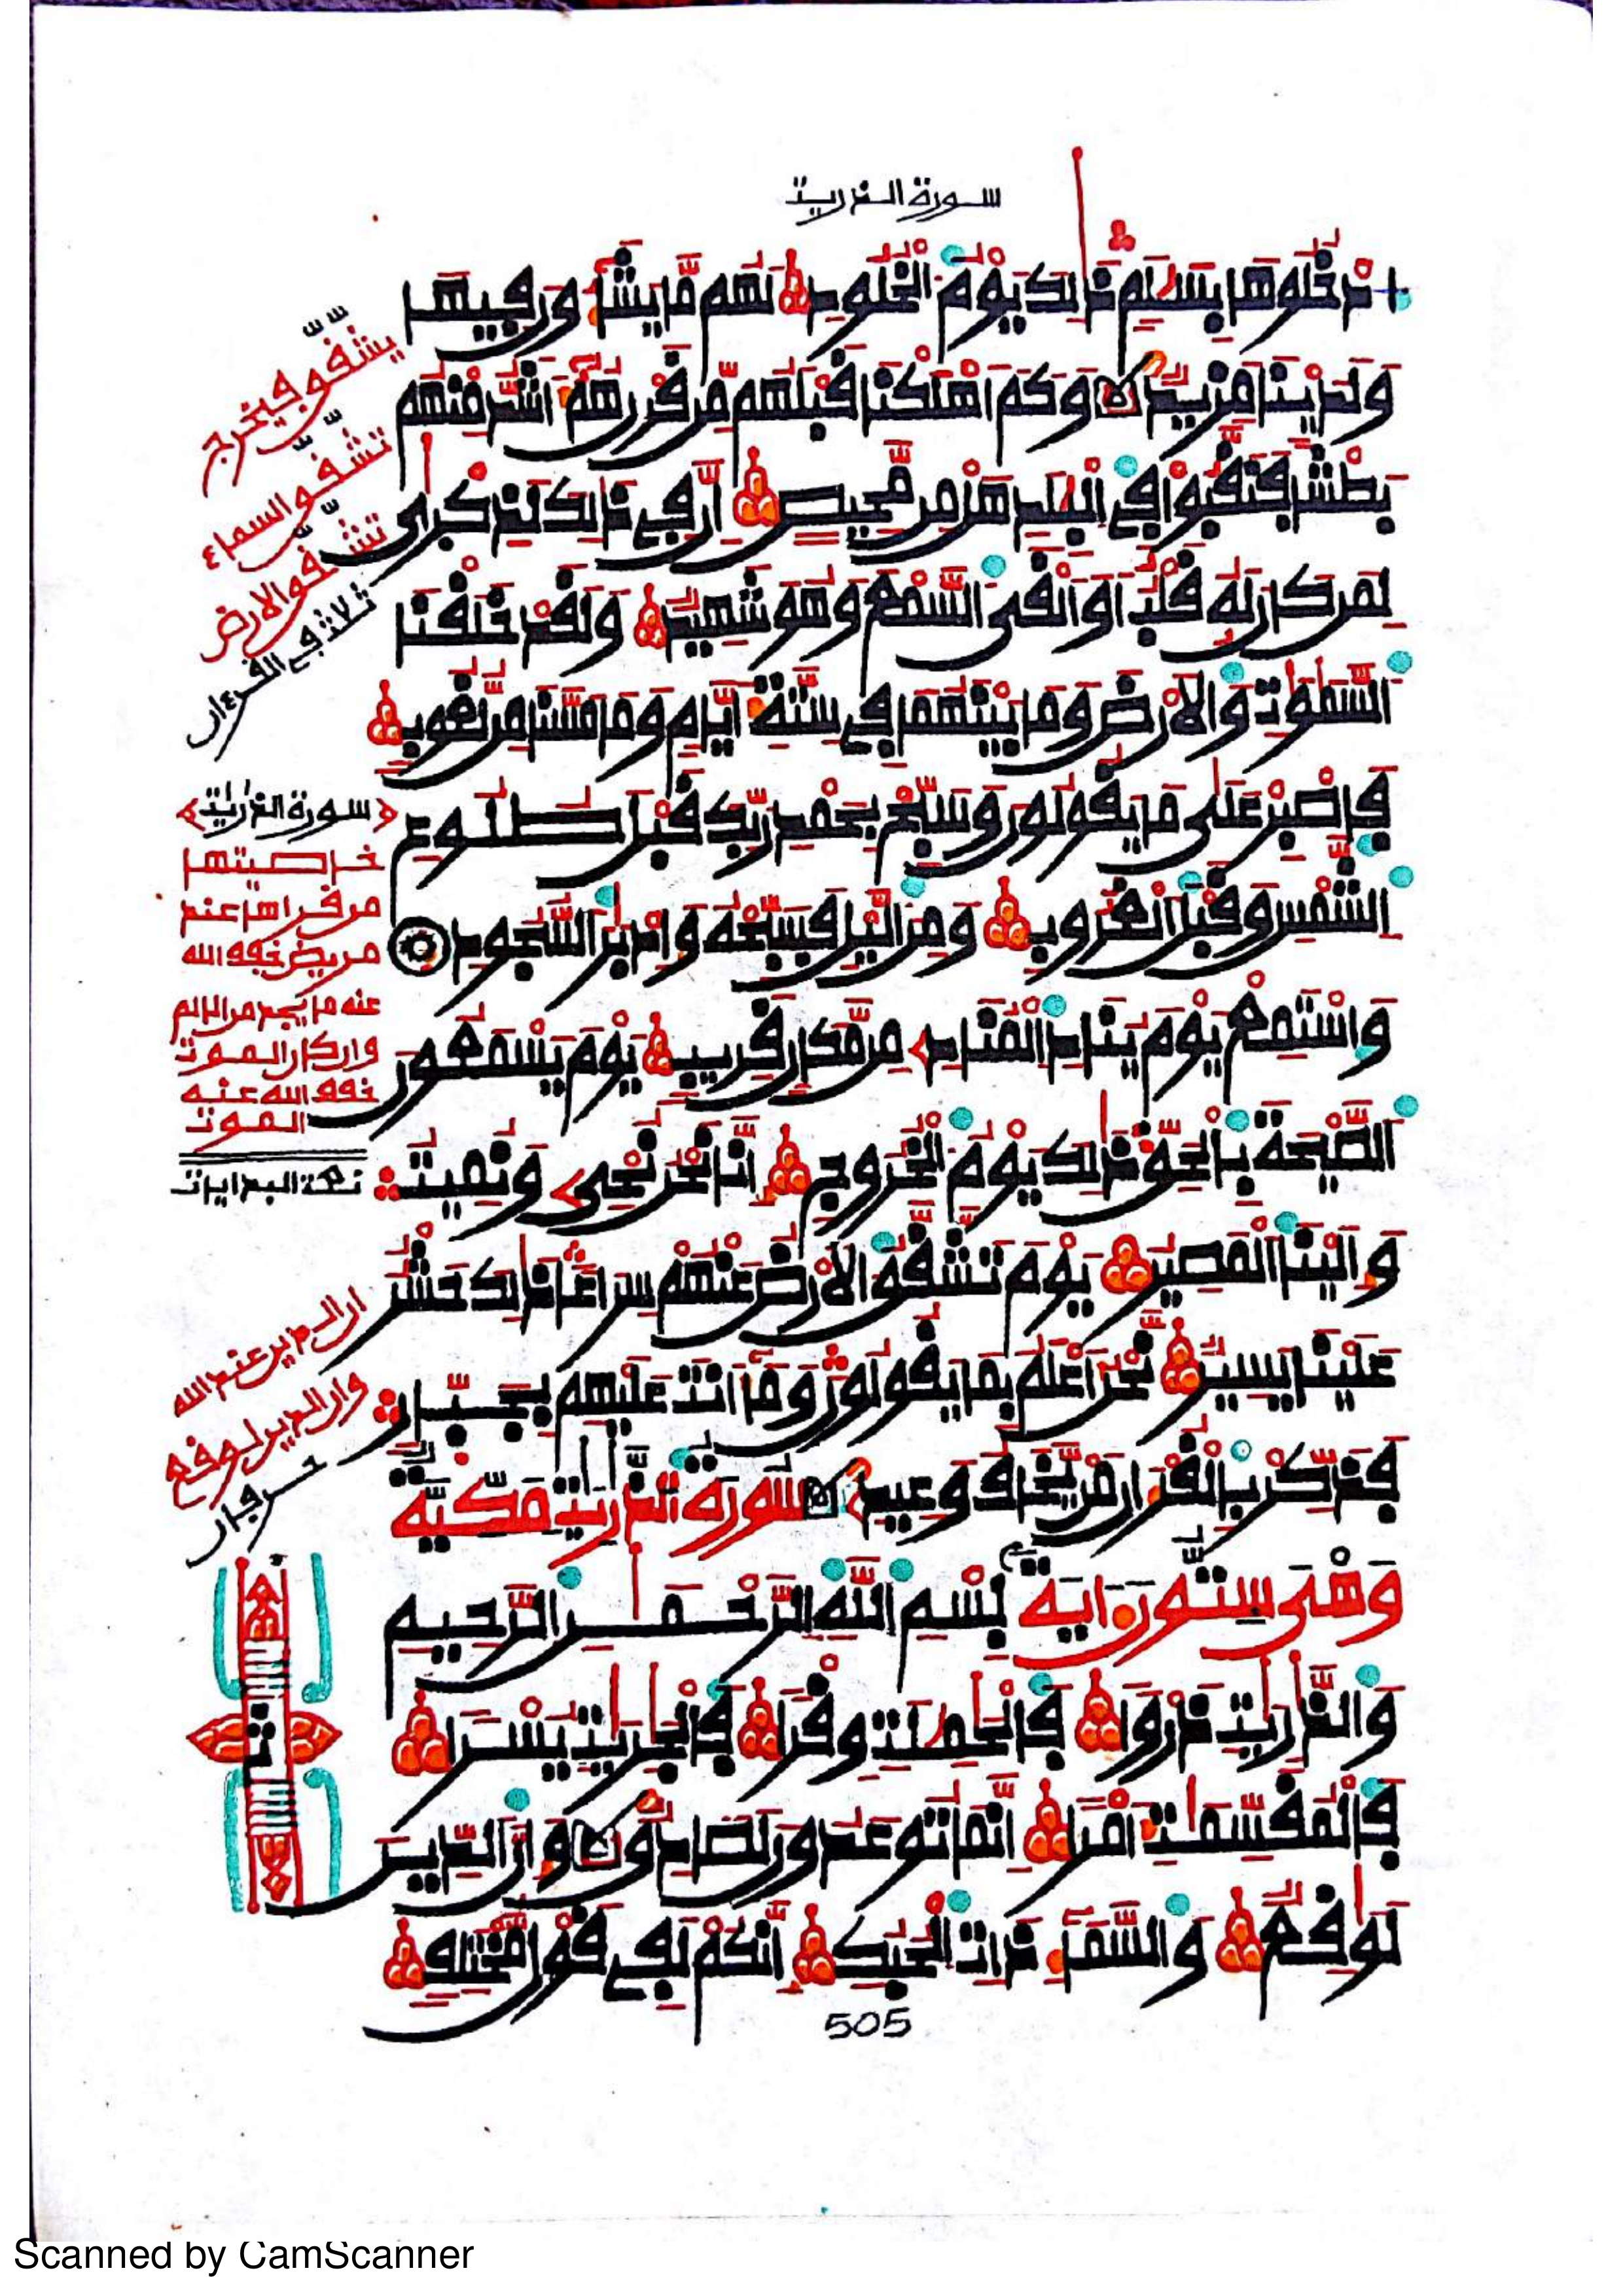 سورة الذريت
ادخلوها بسلم ذلك يوم الخلود لهم ما يشاءون فيها
ولدينا مزيد وكم اهلكنا قبلهم من قرن هم اشد منهم
بطشا فنقبوا في البلد هل من محيص ان في ذلك لذكرى
لمن كان له قلب او القى السمع وهو شهيد ولقد خلقنا
السموت والارض وما بينهما في ستة ايام وما مسنا من لغوب
فاصبر على ما يقولون وسبح بحمد ربك قبل طلوع
الشمس وقبل الغروب ومن اليل فسبحه وادبر السجود
واستمع يوم يناد المناد من مكان قريب يوم يسمعون
الصيحة بالحق ذلك يوم الخروج انا نحن نحي ونميت
والينا المصير يوم تشقق الارض عنهم سراعا ذلك حشر
علينا يسير نحن اعلم بما يقولون وما انت عليهم بجبار
فذكر بالقرءان من يخاف وعيد سورة الذريت مكية
وهي ستون اية بسم الله الرحمن الرحيم
والذريت ذروا فالحملت وقرا فالجريت يسرا
فالمقسمت امرا انما توعدون لصادق وان الدين
لوقع والسماء ذات الحبك انكم لفي قول مختلف
505
يشقق فيخرج
تشقق السماء
تشقق الارض
ثلاث في القرءان
سورة الذريت
خاصيتها
من قراها عند
مريض خفف الله
عنه ما يجد من الالم
وان كان الموت
خفف الله عنه
الموت
تمت البدايات
ان الدين عند الله
وان الدين لوقع
حرفان
Scanned by CamScanner